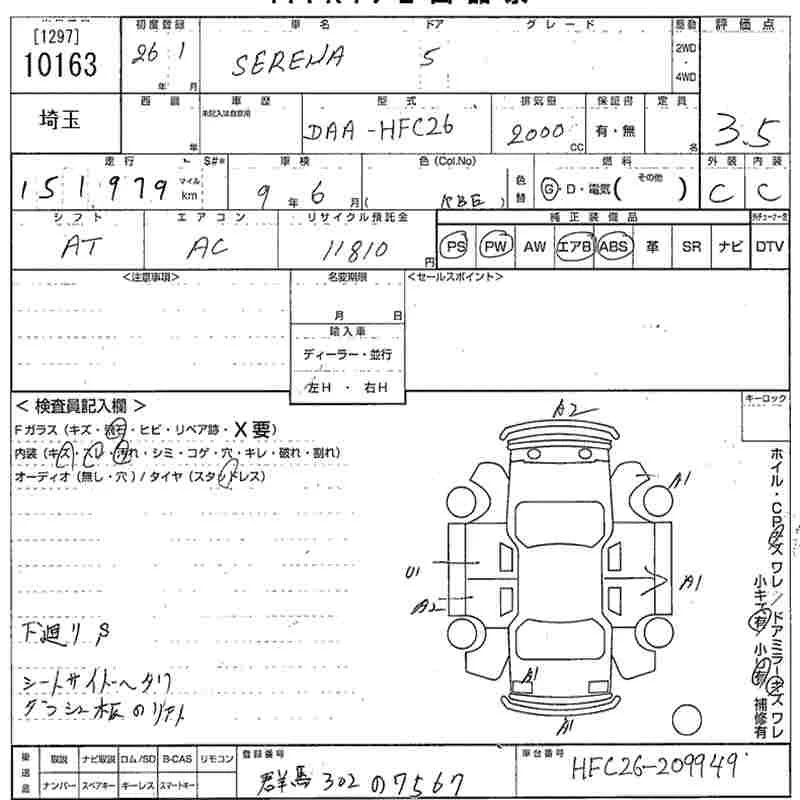 [1297]
10163
初度登録
26 1
年 月
車名 ドア グレード
SERENA 5
駆動
2WD
4WD
評価点
3.5
埼玉
車歴
未記入は自家用
年
型式
DAA-HFC26
排気量
2000 CC
保証書
有・無
定員
名
外装 内装
C C
走行 S#*
151979 マイル km
車検
9年 6月
色(Col.No)
( KBE )
色替
燃料
G・D・電気( その他 )
シフト
AT
エアコン
AC
リサイクル預託金
11810円
純正装備品
PS PW AW エアB ABS 革 SR ナビ DTV
<注意事項>
名変期限
月 日
輸入車
ディーラー・並行
左H・右H
<セールスポイント>
<検査員記入欄>
キーロック
Fガラス(キズ・飛石・ヒビ・リペア跡・X要)
内装(キズ・スレ・汚れ・シミ・コゲ・穴・キレ・破れ・割れ)
オーディオ(無し・穴)/タイヤ(スタッドレス)
A2
A1
U1
A2
A1
A1
A1
ホイル・CPキズ ワレ/ドアミラーキズ ワレ
小キズ有 小凹有 補修有
下廻りS
シートサイドヘタリ
後送品
取説 ナビ取説 ロム/SD B-CAS リモコン
ナンバー スペアキー キーレス スマートキー
登録番号
群馬 302 の 7567
車台番号
HFC26-209949